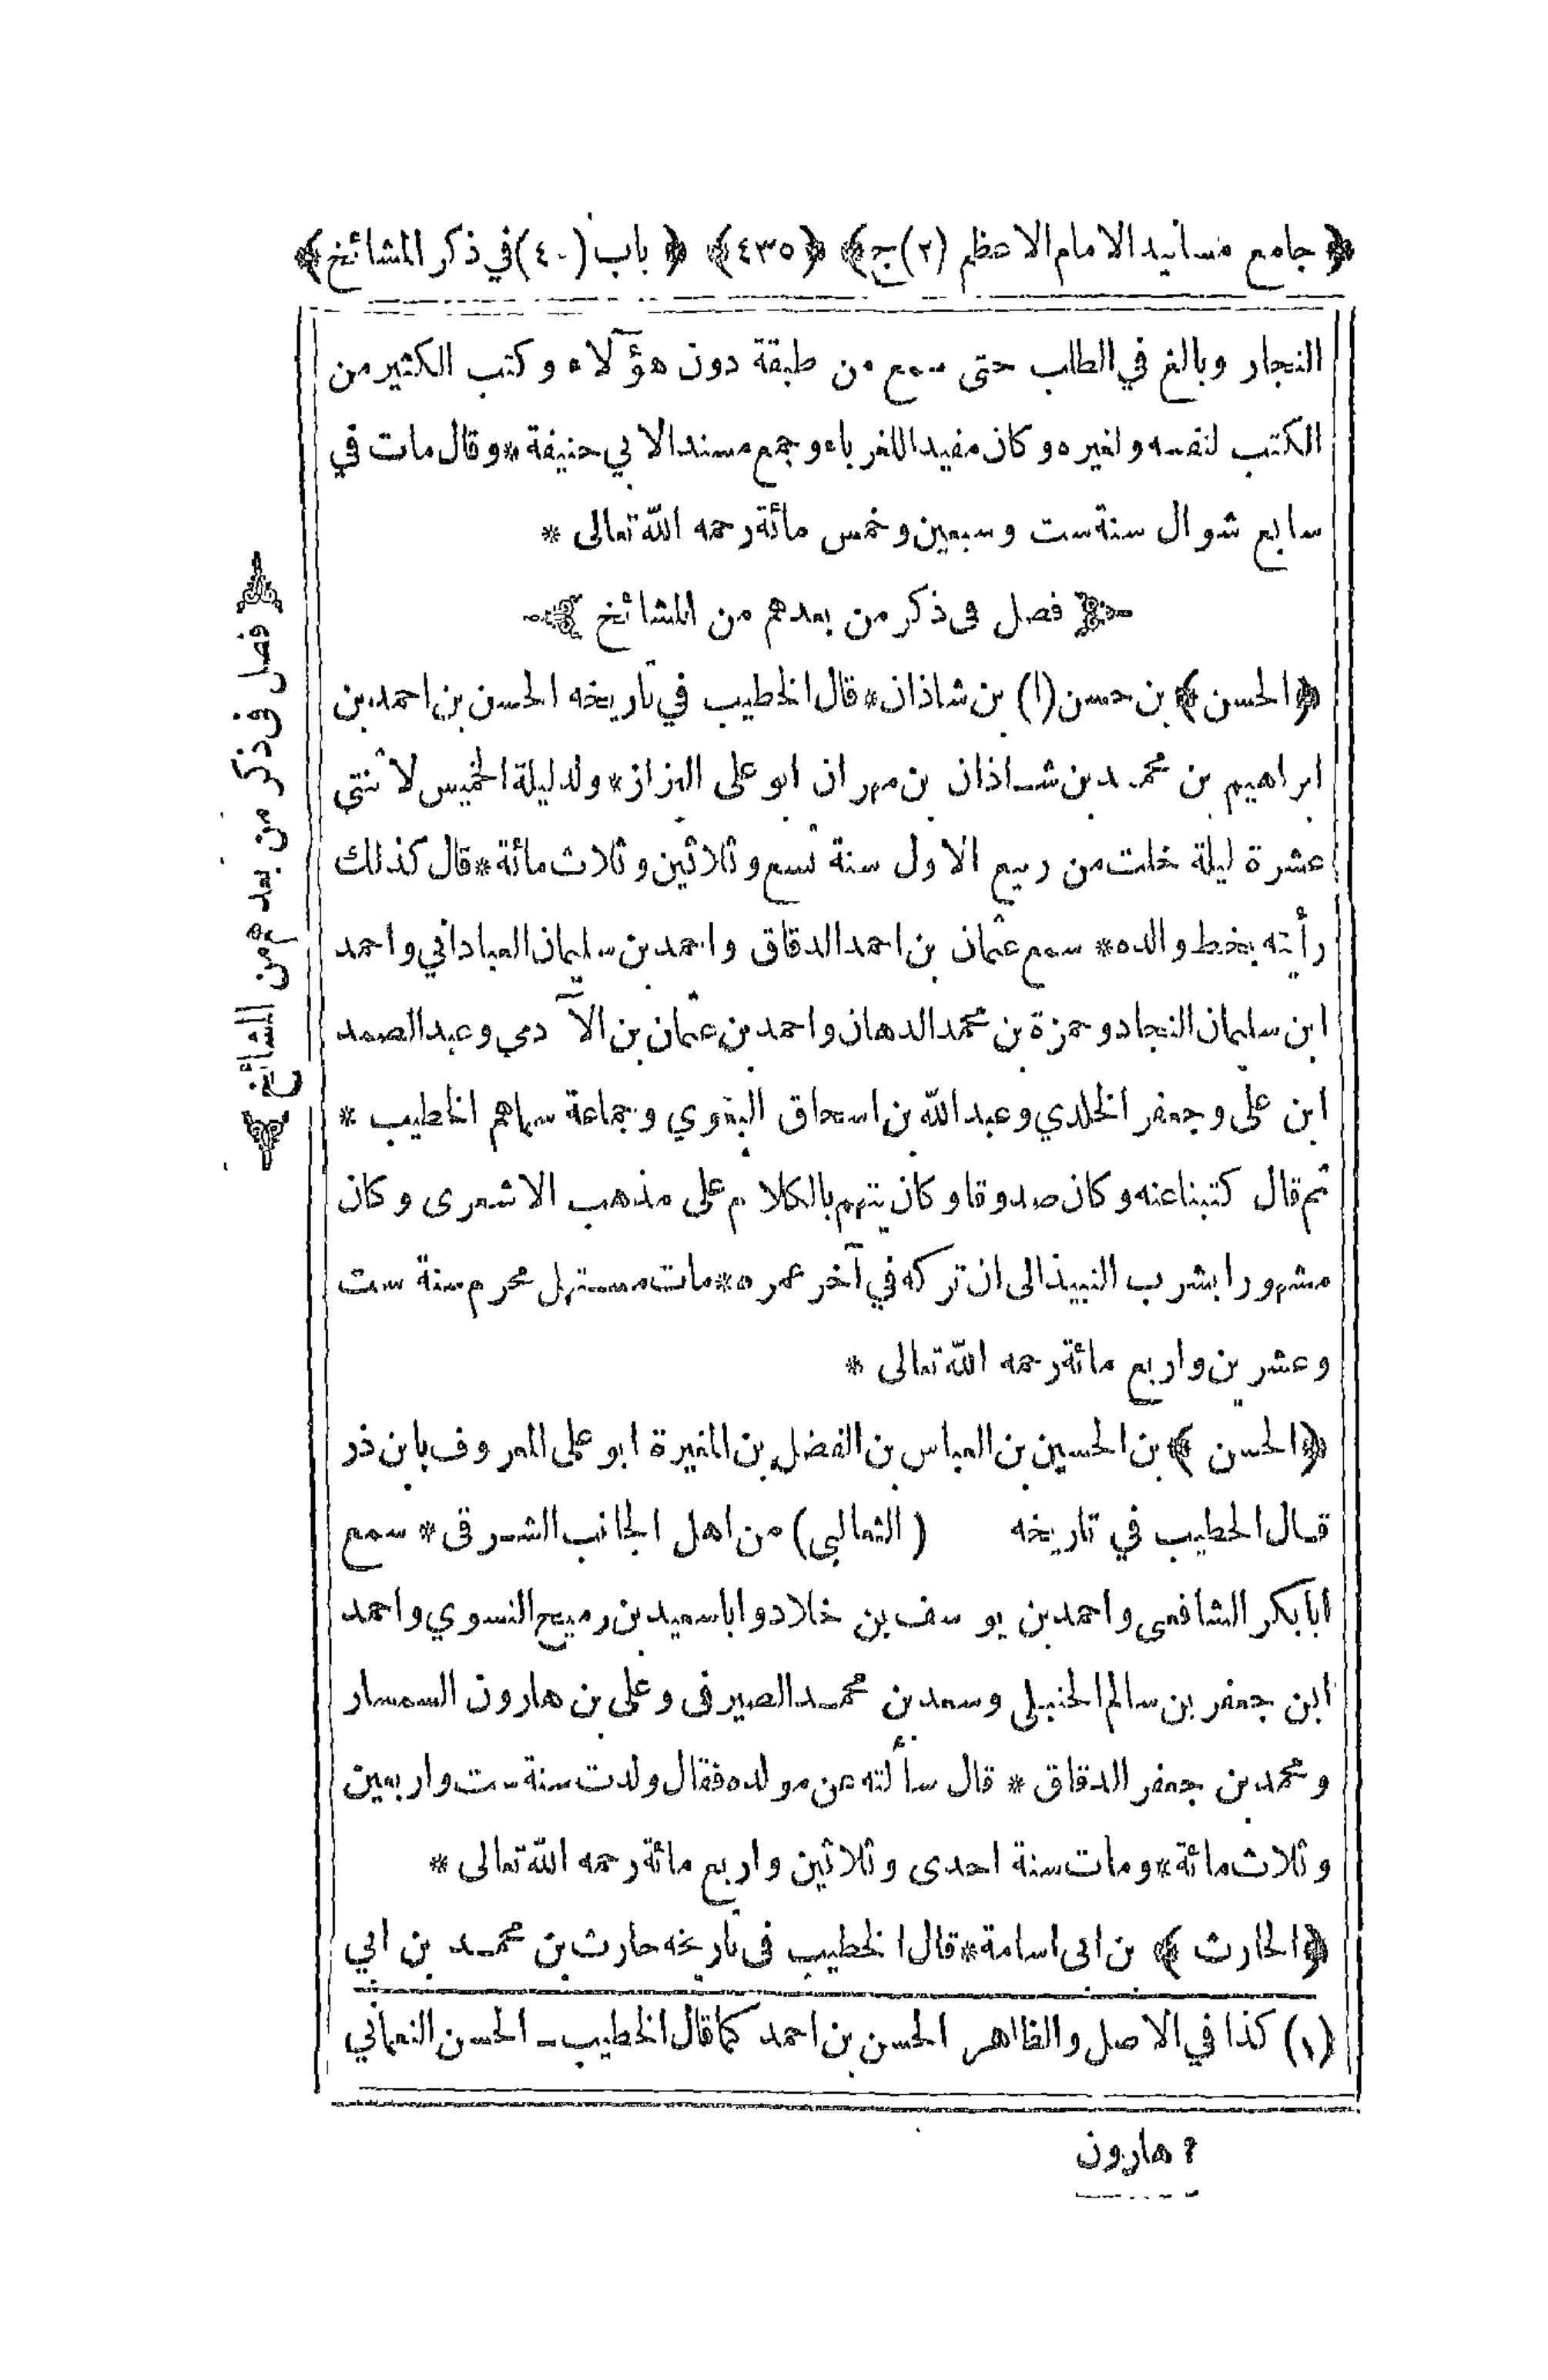 ﴿ جامع مسانيد الامام الاعظم (٢) ج﴾ ﴿٤٣٥﴾ ﴿ باب (٤٠) في ذكر المشائخ﴾
النجار وبالغ في الطلب حتى سمع من طبقة دون هؤلآء وكتب الكثير من
الكتب لنفسه ولغيره وكان مفيدا للغرباء وجمع مسندا لابي حنيفة * وقال مات في
سابع شوال سنة ست وسبعين وخمس مائة رحمه الله تعالى *
فصل فى ذكر من بعدهم من المشائخ
﴿الحسن﴾ بن حسن (١) بن شاذان * قال الخطيب في تاريخه الحسن بن احمد بن
ابراهيم بن محمد بن شاذان بن مهران ابو على البزاز * ولد ليلة الخميس لاثنتى
عشرة ليلة خلت من ربيع الاول سنة تسع وثلاثين وثلاث مائة * قال كذلك
رأيته بخط والده * سمع عثمان بن احمد الدقاق واحمد بن سليمان العباداني واحمد
ابن سليمان النجاد وحمزة بن محمد الدهان واحمد بن عثمان بن الآدمي وعبد الصمد
ابن على وجعفر الخلدي وعبد الله بن اسحاق البغوي وجماعة سماهم الخطيب *
ثم قال كتبنا عنه وكان صدوقا وكان يتهم بالكلام على مذهب الاشعرى وكان
مشهورا بشرب النبيذ الى ان تركه في آخر عمره * مات مستهل محرم سنة ست
وعشرين واربع مائة رحمه الله تعالى *
﴿الحسن ﴾ بن الحسين بن العباس بن الفضل بن المغيرة ابو على المعروف بابن ذر
قال الخطيب في تاريخه (الثعالبي) من اهل الجانب الشرقى * سمع
ابابكر الشافعى واحمد بن يوسف بن خلاد واباسعيد بن رميح النسوي واحمد
ابن جعفر بن سالم الحنبلي وسعد بن محمد الصيرفى وعلى بن هارون السمسار
ومحمد بن جعفر الدقاق * قال سألته عن مولده فقال ولدت سنة ست واربعين
وثلاث مائة * ومات سنة احدى وثلاثين واربع مائة رحمه الله تعالى *
﴿الحارث ﴾ بن ابى اسامة * قال الخطيب فى تاريخه حارث بن محمد بن ابي
(١) كذا في الاصل والظاهر الحسن بن احمد كما قال الخطيب ـ الحسن النعماني
هارون
فصل فى ذكر من بعدهم من المشائخ